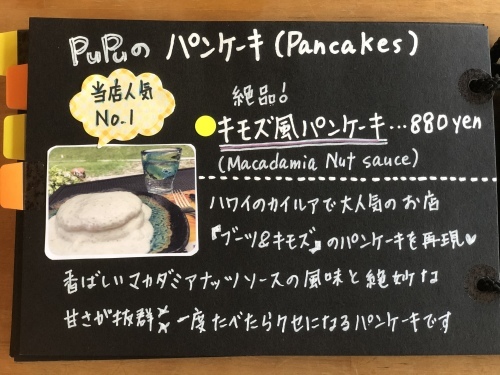 PuPuの パンケーキ (Pancakes)
当店人気
No.1
絶品!
キモズ風パンケーキ…880yen
(Macadamia Nut sauce)
ハワイのカイルアで大人気のお店
『ブーツ&キモズ』のパンケーキを再現♥
香ばしいマカダミアナッツソースの風味と絶妙な
甘さが抜群 一度たべたらクセになるパンケーキです